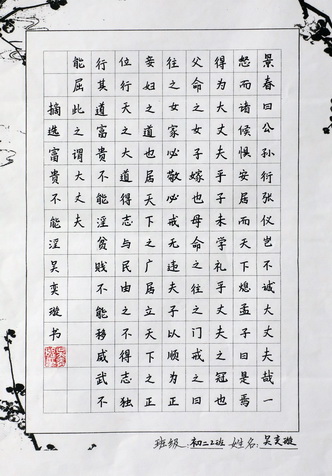 景春曰公孙衍张仪岂不诚大丈夫哉一
怒而诸候惧安居而天下熄孟子曰是焉
得为大丈夫乎子未学礼乎丈夫之冠也
父命之女子嫁也母命之往之门戒之曰
往之女家必敬必戒无违夫子以顺为正
妾妇之道也居天下之广居立天下之正
位行天之大道得志与民由之不得志独
行其道富贵不能淫贫贱不能移威武不
能屈此之谓大丈夫
摘选富贵不能淫吴奕璇书
班级:初二2班 姓名:吴奕璇